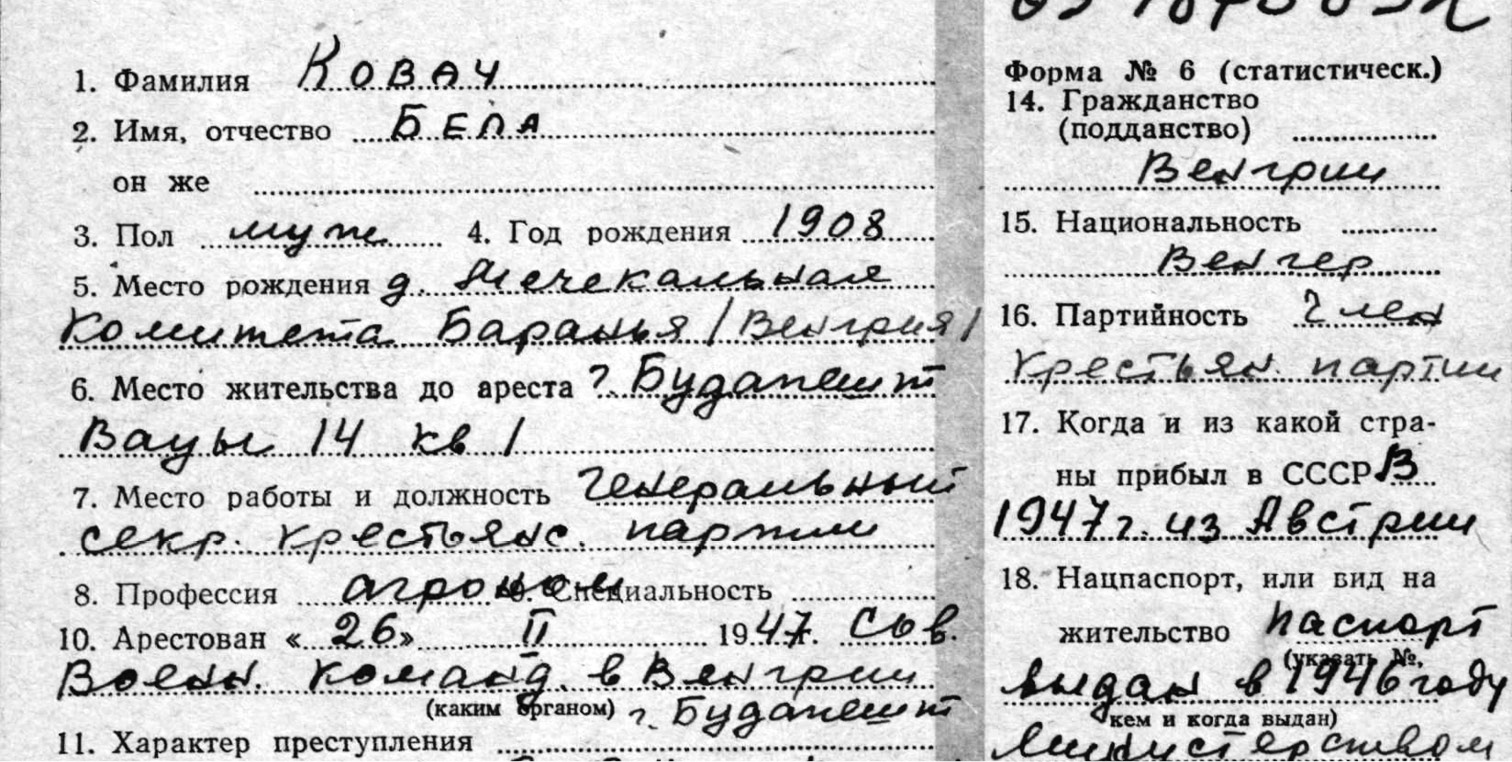 1. Фамилия Ковач
2. Имя, отчество Бела
он же
3. Пол муж 4. Год рождения 1908
5. Место рождения д. Мечекальная
Комитета Баранья /Венгрия/
6. Место жительства до ареста г. Будапешт
14 кв 1
7. Место работы и должность Генеральный
секр. крестьянс. партии
8. Профессия агроном 9. Специальность
10. Арестован «26» II 1947. Сов.
Воен. команд. в Венгрии
(каким органом) г. Будапешт
11. Характер преступления
Форма № 6 (статистическ.)
14. Гражданство
(подданство)
Венгрии
15. Национальность
Венгер
16. Партийность Член
крестьян. партии
17. Когда и из какой стра-
ны прибыл в СССР В
1947 г. из Австрии
18. Нацпаспорт, или вид на
жительство паспорт
(указать №,
выдан в 1946 году
кем и когда выдан)
Министерством